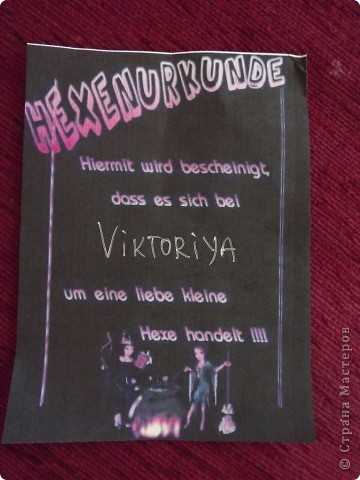 HEXENURKUNDE
Hiermit wird bescheinigt,
dass es sich bei
ViKTORiYA
um eine liebe kleine
Hexe handelt !!!!
© Страна Мастеров